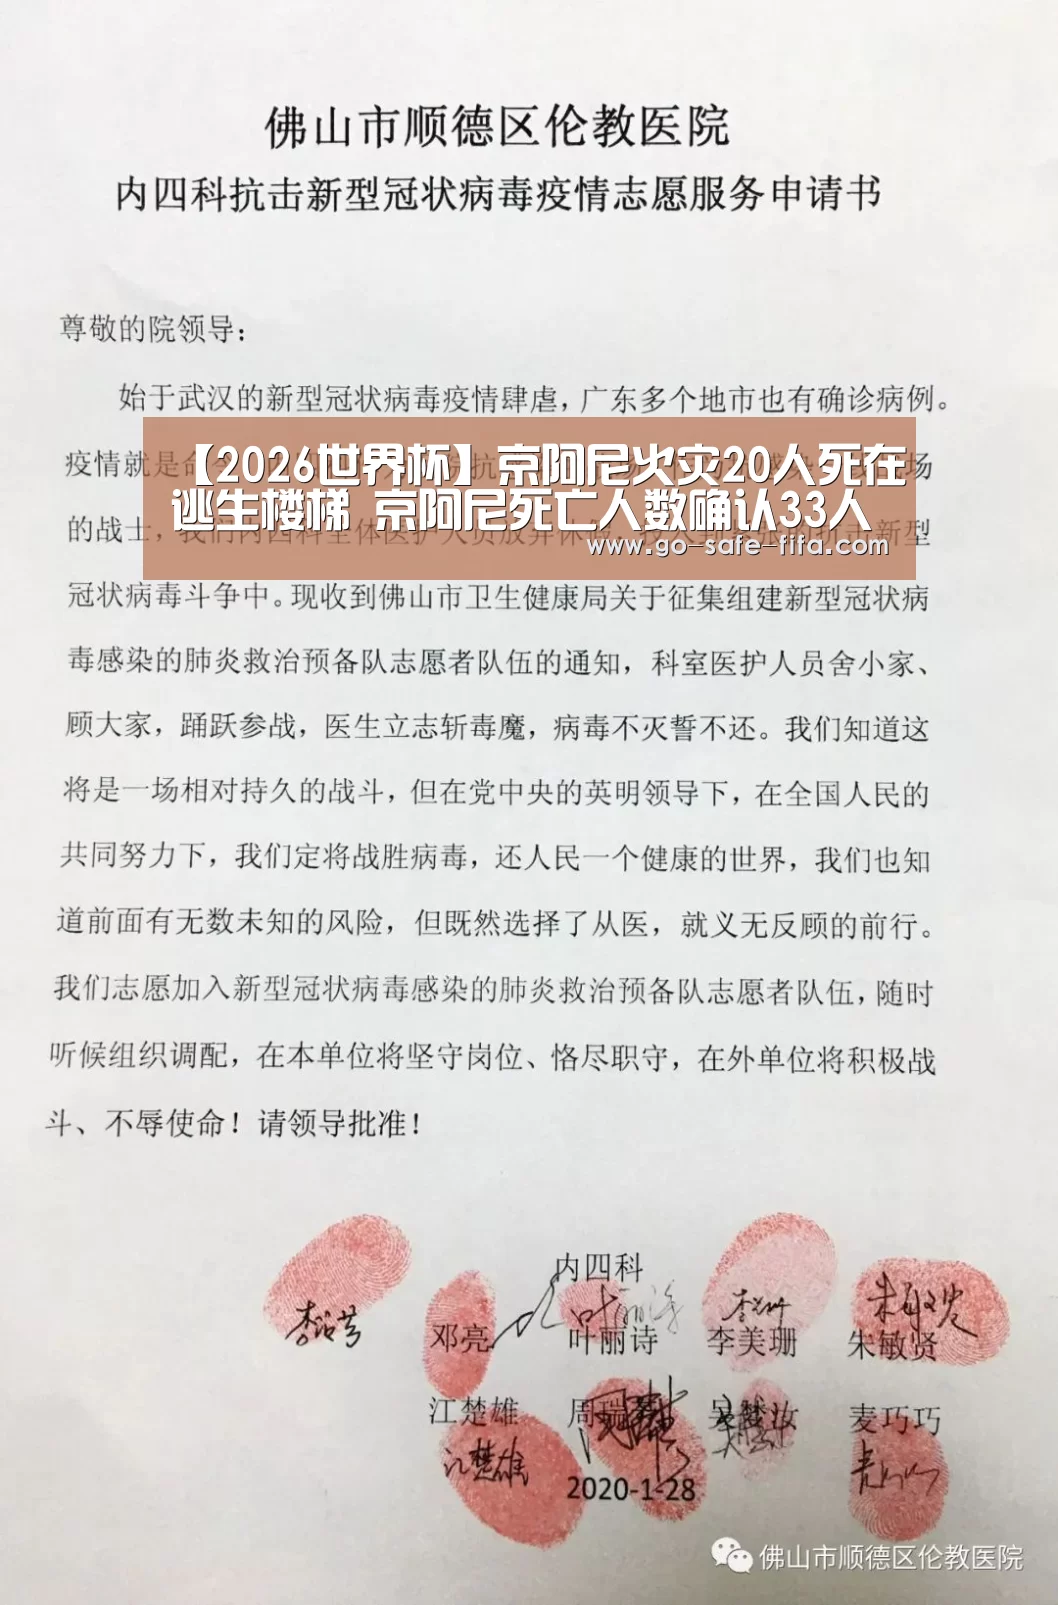 佛山市顺德区伦教医院
内四科抗击新型冠状病毒疫情志愿服务申请书
尊敬的院领导：
始于武汉的新型冠状病毒疫情肆虐，广东多个地市也有确诊病例。
疫情就是命令
场
【2026世界杯】京阿尼火灾20人死在
逃生楼梯 京阿尼死亡人数确认33人
www.go-safe-fifa.com
的战士，我们内四科全体医护人员放弃休假
新型
冠状病毒斗争中。现收到佛山市卫生健康局关于征集组建新型冠状病
毒感染的肺炎救治预备队志愿者队伍的通知，科室医护人员舍小家、
顾大家，踊跃参战，医生立志斩毒魔，病毒不灭誓不还。我们知道这
将是一场相对持久的战斗，但在党中央的英明领导下，在全国人民的
共同努力下，我们定将战胜病毒，还人民一个健康的世界，我们也知
道前面有无数未知的风险，但既然选择了从医，就义无反顾的前行。
我们志愿加入新型冠状病毒感染的肺炎救治预备队志愿者队伍，随时
听候组织调配，在本单位将坚守岗位、恪尽职守，在外单位将积极战
斗、不辱使命！请领导批准！
内四科
邓亮 叶丽诗 李美珊 朱敏贤
江楚雄 周瑞 汝 麦巧巧
江楚雄
2020-1-28
佛山市顺德区伦教医院